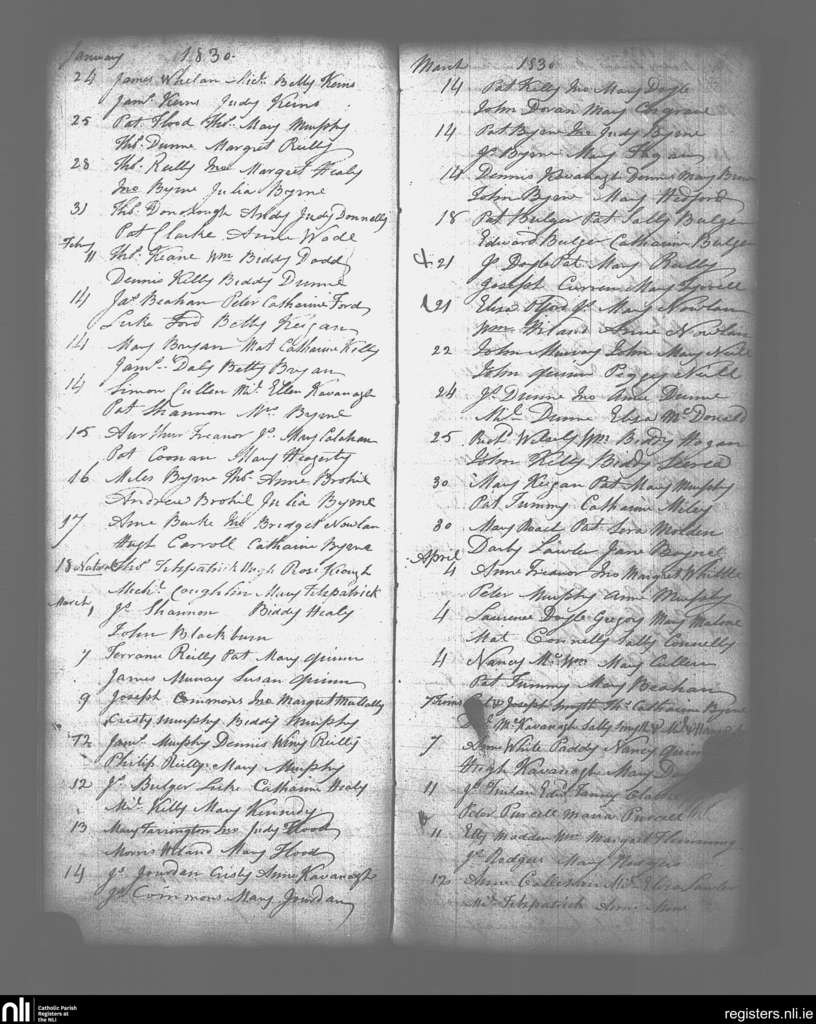 January 1830.
24 James Whelan Mich. Betty Kerns
Jams. Kerns Judy Kerns
25 Pat Flood Ths. Mary Murphy
Ths. Dunne Margret Reilly
28 Ths. Reilly Jno Margret Healy
Jno Byrne Julia Byrne
31 Ths. Donolough Andy Judy Donnelly
Pat Clarke Anne Wade
Feby
11 Ths. Keane Wm Biddy Dodd
Dennis Kelly Biddy Dunne
14 Jas. Beahan Peter Catharine Ford
Luke Ford Betty Keigan
14 Mary Bryan Mat Catharine Kelly
Jams. Daly Betty Bryan
14 Simon Cullen Ml. Ellen Kavanagh
Pat Shannon Mrs. Byrne
15 Aurthur Treanor Js. Mary Calahan
Pat Coonan Mary Heagerty
16 Miles Byrne Ths. Anne Brohil
Andrew Brohil Julia Byrne
17 Anne Burke Jno Bridget Nowlan
Hugh Carroll Catharine Byrne
18 Natural Thos. Fitzpatrick Hugh Rose Keough
Michl. Coughlin Mary Fitzpatrick
March
1 Js. Shannon Biddy Healy
John Blackburn
7 Terrance Reilly Pat Mary Quinn
James Murray Susan Quinn
9 Joseph Commons Jno Margret Mullally
Cristy Murphy Biddy Murphy
12 Jams. Murphy Dennis Winy Reilly
Philip Reilly Mary Murphy
12 Js. Bulger Luke Catharine Healy
Ml. Kelly Mary Kennedy
13 Mary Farrington Jno Judy Flood
Morris Weland Mary Flood
14 Js. Jourdan Cristy Anne Kavanagh
Js. Commons Mary Jourdan
March 1830
14 Pat Kelly Jno Mary Doyle
John Doran Mary Cosgrave
14 Pat Byrne Jno Judy Byrne
Js. Byrne Mary Fagan
14 Dennis Kavanagh Dennis Mary
John Byrne Mary Redford
18 Pat Bulger Pat Sally Bulger
Edward Bulger Catharine Bulger
21 Js. Doyle Pat Mary Reilly
Joseph Curran Mary Tyrrell
21 Eliza Js. Mary Nowlan
Wm Anne Nowlan
22 John Murray John Mary Neill
John Quinn Peggy Neill
24 Js. Dunne Jno Anne Dunne
Ml. Dunne Eliza McDonald
25 Wm. Biddy Hogan
John Kelly Biddy
30 Mary Keigan Pat Mary Murphy
Pat Tummy Catharine Miley
30 Mary Pat Molden
Darby Lawler Jane
April
4 Anne Treanor Jno Margret Whittle
Peter Murphy Anne Murphy
4 Laurence Doyle Gregory Mary Malone
Mat Connelly Sally Connelly
4 Nancy Wm Mary Cullen
Pat Tummy Mary Beahan
Twins & Joseph Smyth Ths. Catharine Byrne
Kavanagh Sally Smyth & Ml.
7 Anne White Paddy Nancy Quinn
Hugh Kavanagh Mary
11 Js. Edwd. Fanny
Peter Purcell Maria Purcell
11 Etty Madden Wm Margret Flemming
Js. Rodgers Mary Rodgers
12 Anne Ml. Eliza Lawler
Ml. Fitzpatrick Anne
nli
Catholic Parish
Registers at
the NLI
registers.nli.ie